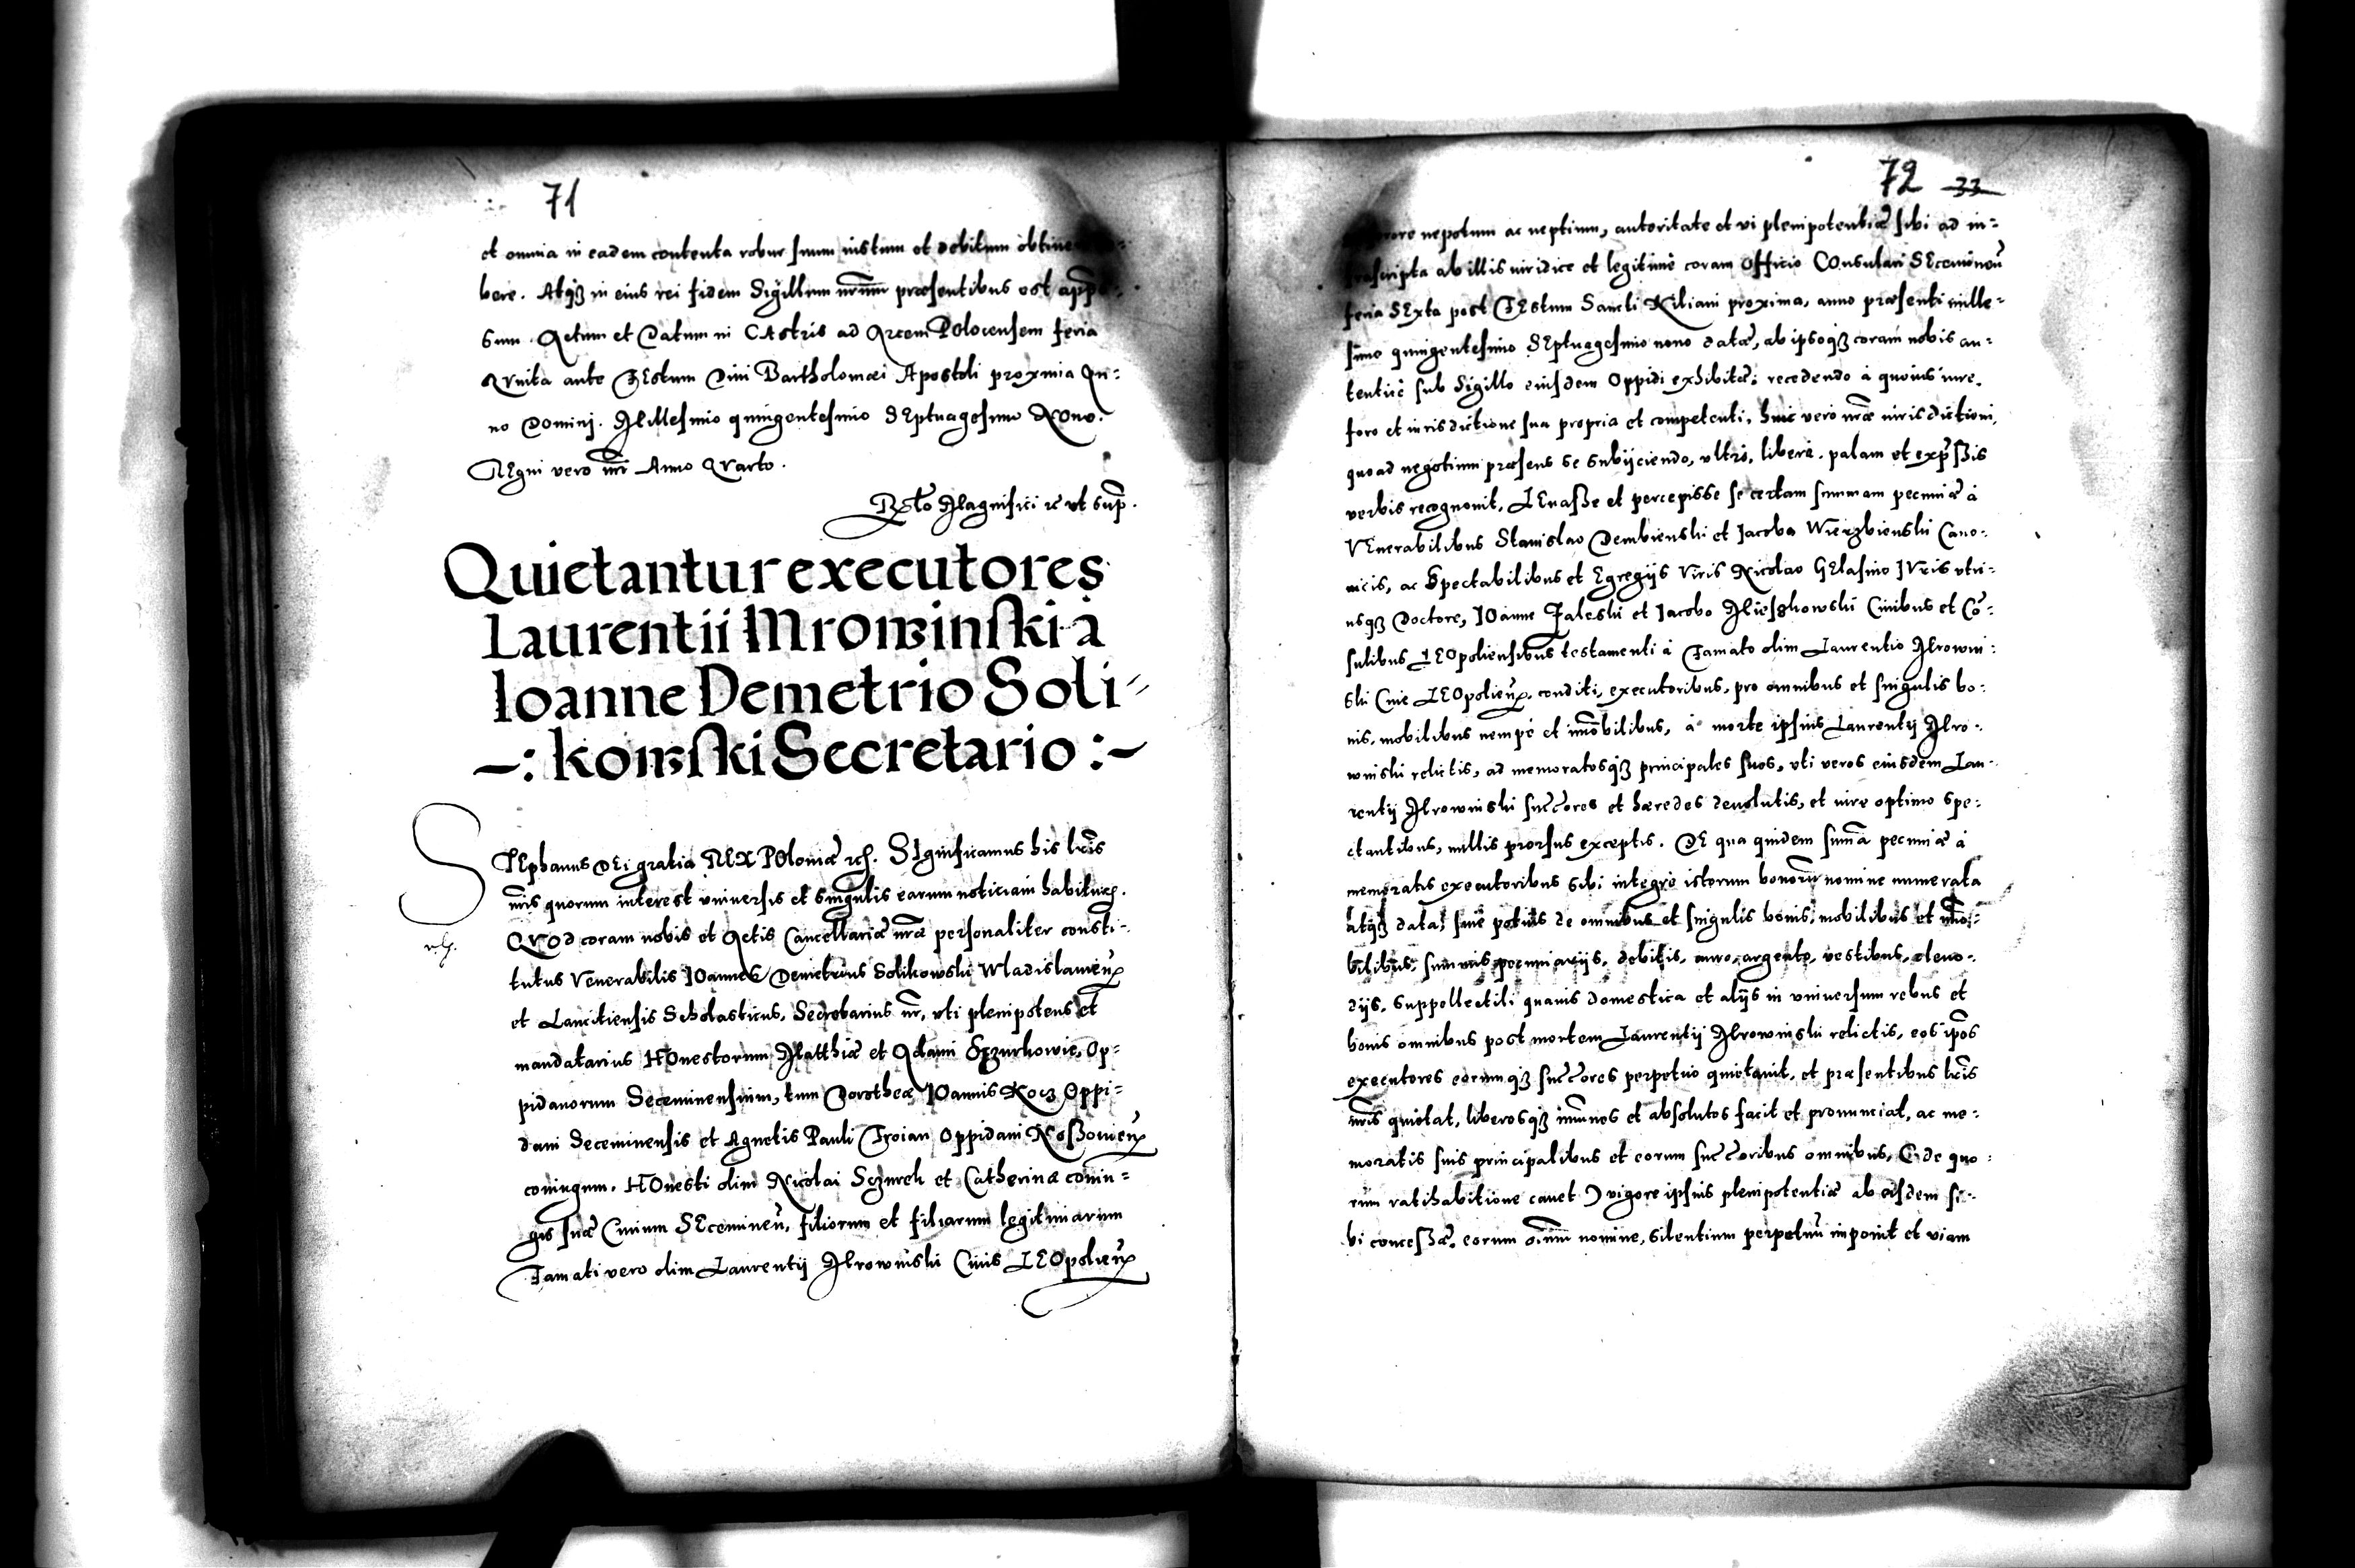 71
et omnia in eadem contenta robur suum iustum et debitum
bere. Atqꝫ in eius rei fidem Sigillum nrūm præsentibus est
sum. Actum et Datum in CAstris ad Arcem POlocensem feria
QVuita ante FEstum Diui Bartholomæi Apostoli proxima An=
no Dominj. Millesimo quingentesimo SEptuagesimo NOno.
REgni vero nrī Anno QVarto.
Magnifici ꝛc vt sup̄.
Quietantur executores
Laurentii Mrowinski à
Ioanne Demetrio Soli=
-: kowski Secretario :-
STEphanus DEi gratia REX POloniæ ꝛc. SIgnificamus his lrīs
nrīs quorum interest vniuersis et singulis earum noticiam habituris.
QVOd coram nobis et Actis Cancellariæ nrǣ personaliter consti=
tutus Venerabilis IOannes Demetrius Solikowski Wladislauien̄
et Lanciciensis Scholasticus, Secretarius nr̄, vti plenipotens et
mandatarius HOnestorum Matthiæ et Adami Sczurkowic, Op=
pidanorum Seceminensium, tum Dorotheæ IOannis Kocz Oppi=
dani Seceminensis et Agnetis Pauli Troian Oppidani
coniugum. HOnesti olim Nicolai Sczurek et Catherinæ coniu=
gis suæ Ciuium SEceminen̄, filiorum et filiarum legitimarum
Famati vero olim Laurentij Mrowinski Ciuis LEOpolien̄
72 33
nepotum ac neptium, autoritate et vi plenipotentiæ sibi ad in=
frascripta ab illis iuridice et legitimè coram Officio COnsulari SEceminen̄
feria SExta post FEstum Sancti Kiliani proxima, anno præsenti mille=
simo quingentesimo SEptuagesimo nono datæ, ab ipsoqꝫ coram nobis au=
tenticè sub Sigillo eiusdem Oppidi exhibitæ: recedendo à quouis iure,
foro et iurisdictione sua propria et competenti, huic vero nrǣ iurisdictioni,
quoad negotium præsens se subijciendo, vltrò, liberè, palam et exp̄ssis
verbis recognouit, LEuasse et percepisse se certam summam pecuniæ à
VEnerabilibus Stanislao Dembienski et Jacobo Wierzbienski Cano=
nicis, ac Spectabilibus et Egregijs Viris Nicolao GElasino IVris vtri=
usqꝫ Doctore, IOanne Zaleski et Jacobo Ciuibus et Cō=
sulibus LEOpoliensibus testamenti à Famato olim Laurentio Mrowin=
ski Ciue LEOpolien̄. conditi, executoribus, pro omnibus et singulis bo=
nis, mobilibus nempè et im̄obilibus, à morte ipsius Laurentij Mro=
winski relictis, ad memoratosqꝫ principales suos, vti veros eiusdem Lau=
rentij Mrowinski succ̄ores et hæredes deuolutis, et iure optimo spe=
ctantibus, nullis prorsus exceptis. DE qua quidem sum̄a pecuniæ à
memoratis executoribus sibi integrè istorum bonorū nomine numerata
atqꝫ data, siue potius de omnibus et singulis bonis, mobilibus et im̄o=
bilibus, summis pecuniarijs, debitis, auro, argento, vestibus, cleno=
dijs, suppellectili quauis domestica et alijs in vniuersum rebus et
bonis omnibus post mortem Laurentij Mrowinski relictis, eos ip̄os
executores eorumqꝫ succ̄ores perpetuo quietauit, et præsentibus lrīs
nrīs quietat, liberosqꝫ im̄unes et absolutos facit et pronunciat, ac me=
moratis suis principalibus et eorum succ̄oribus omnibus, (de quo=
rum ratihabitione cauet) vigore ipsius plenipotentiæ ab eisdem si=
bi concessæ, eorum oīum nomine, silentium perpetuū imponit et viam